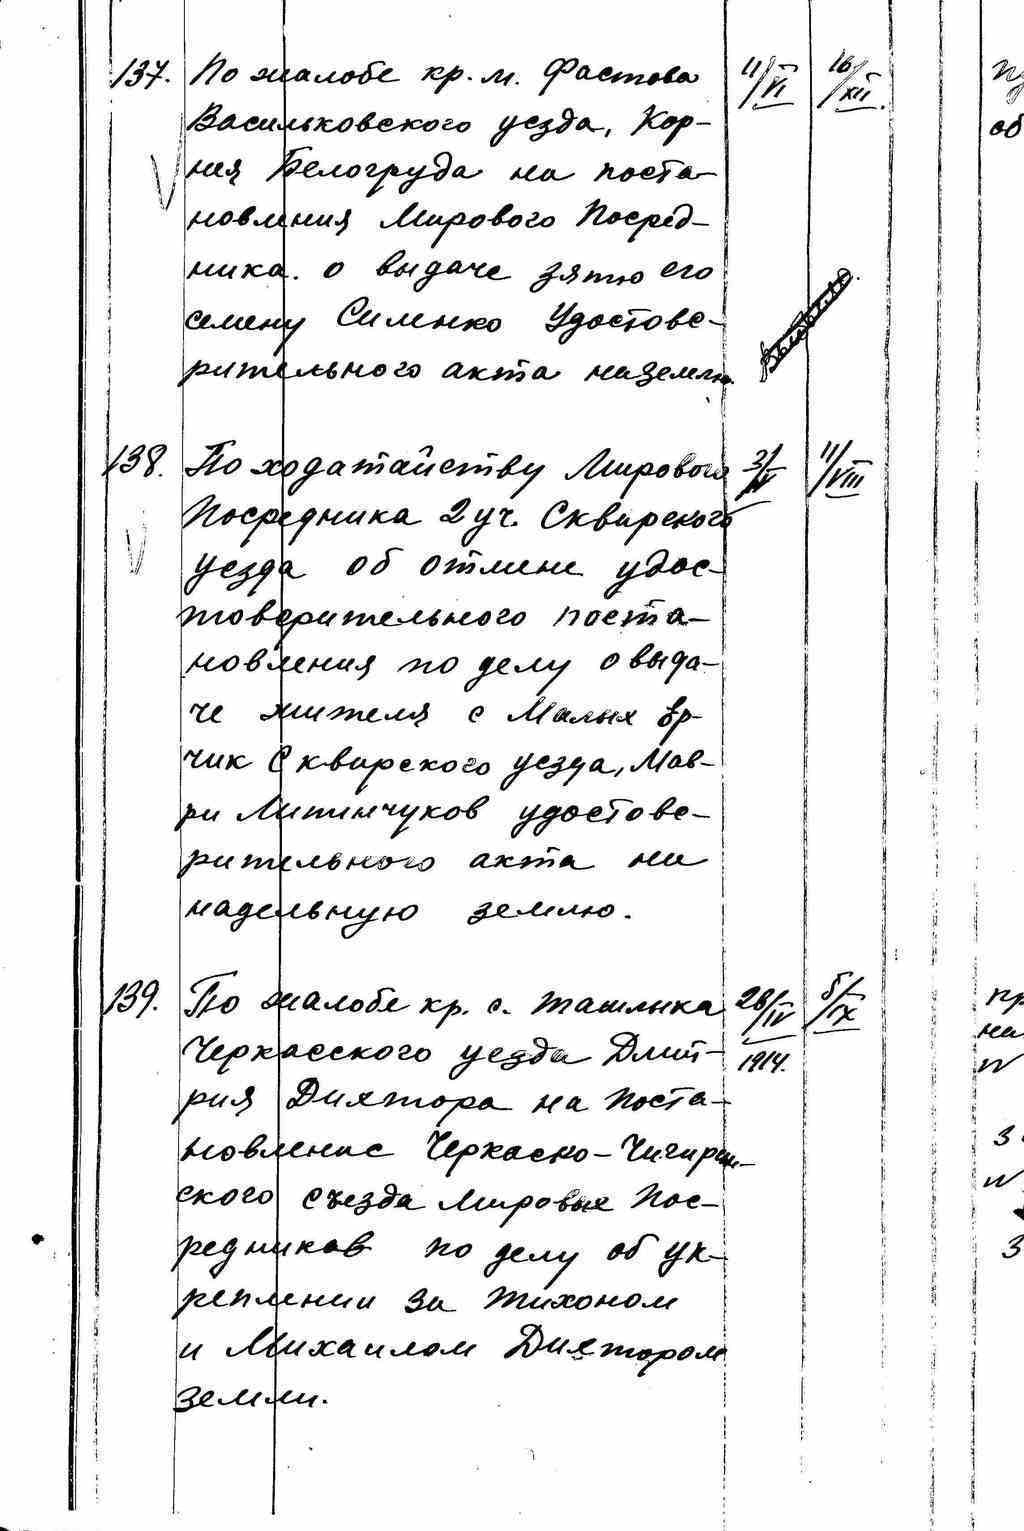 137. По жалобе кр. м. Фастова 11/VI 16/XII.
Васильковского уезда, Кор-
нея Белогруда на поста-
новления Мирового Посред-
ника. о выдаче зятю его
Семену Силенко Удостове-
рительного акта на землю.
138. По ходатайству Мирового 3/IV 11/VIII
Посредника 2 уч. Сквирского
уезда об отмене удос-
товерительного поста-
новления по делу о выда-
че жителя с Малых Ер-
чик Сквирского уезда, Мав-
ри Литинчуков удостове-
рительного акта на
надельную землю.
139. По жалобе кр. с. Ташлыка 28/IV 5/IX
Черкасского уезда Дмит- 1914.
рия Дихтора на поста-
новление Черкасско-Чигирин-
ского съезда Мировых Пос-
редников по делу об ук-
реплении за Тихоном
и Михаилом Дихтором
земли.